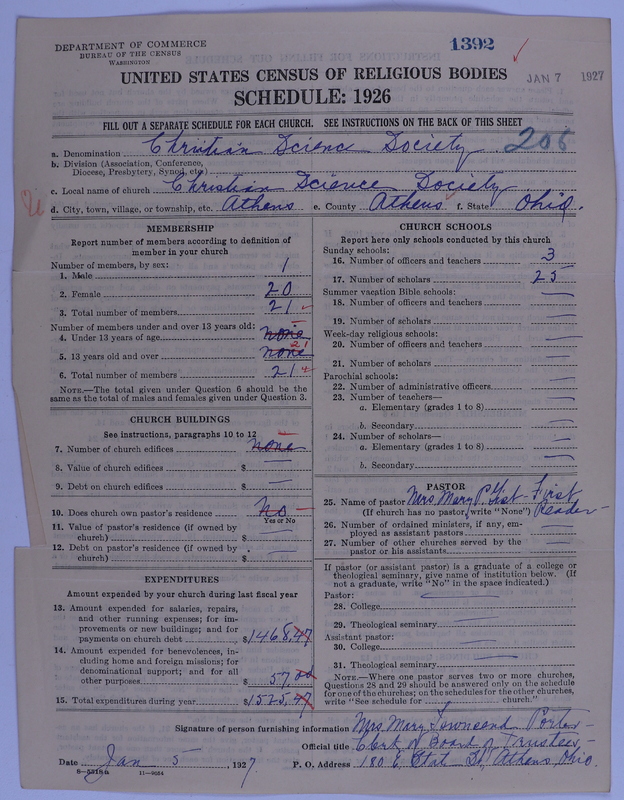 DEPARTMENT OF COMMERCE
BUREAU OF THE CENSUS
WASHINGTON
1392
JAN 7 1927
UNITED STATES CENSUS OF RELIGIOUS BODIES
SCHEDULE: 1926
FILL OUT A SEPARATE SCHEDULE FOR EACH CHURCH. SEE INSTRUCTIONS ON THE BACK OF THIS SHEET
a. Denomination Christian Science Society 206
b. Division (Association, Conference, Diocese, Presbytery, Synod, etc.)
c. Local name of church Christian Science Society
d. City, town, village, or township, etc. Athens e. County Athens f. State Ohio.
MEMBERSHIP
Report number of members according to definition of
member in your church
Number of members, by sex:
1. Male 1
2. Female 20
3. Total number of members 21
Number of members under and over 13 years old:
4. Under 13 years of age none
5. 13 years old and over none 21
6. Total number of members 21
NOTE.—The total given under Question 6 should be the
same as the total of males and females given under Question 3.
CHURCH BUILDINGS
See instructions, paragraphs 10 to 12
7. Number of church edifices none
8. Value of church edifices $
9. Debt on church edifices $
10. Does church own pastor's residence No
Yes or No
11. Value of pastor's residence (if owned by
church) $
12. Debt on pastor's residence (if owned by
church) $
EXPENDITURES
Amount expended by your church during last fiscal year
13. Amount expended for salaries, repairs,
and other running expenses; for im-
provements or new buildings; and for
payments on church debt $1468.47
14. Amount expended for benevolences, in-
cluding home and foreign missions; for
denominational support; and for all
other purposes $ 57.00
15. Total expenditures during year $1525.47
CHURCH SCHOOLS
Report here only schools conducted by this church
Sunday schools:
16. Number of officers and teachers 3
17. Number of scholars 25
Summer vacation Bible schools:
18. Number of officers and teachers
19. Number of scholars
Week-day religious schools:
20. Number of officers and teachers
21. Number of scholars
Parochial schools:
22. Number of administrative officers
23. Number of teachers—
a. Elementary (grades 1 to 8)
b. Secondary
24. Number of scholars—
a. Elementary (grades 1 to 8)
b. Secondary
PASTOR
25. Name of pastor Mrs Mary P. First
(If church has no pastor, write "None") Reader
26. Number of ordained ministers, if any, em-
ployed as assistant pastors
27. Number of other churches served by the
pastor or his assistants
If pastor (or assistant pastor) is a graduate of a college or
theological seminary, give name of institution below. (If
not a graduate, write "No" in the space indicated.)
Pastor:
28. College
29. Theological seminary
Assistant pastor:
30. College
31. Theological seminary
NOTE.—Where one pastor serves two or more churches,
Questions 28 and 29 should be answered only on the schedule
for one of the churches; on the schedules for the other churches,
write "See schedule for church."
Signature of person furnishing information Mrs Mary Townsend Porter
Official title Clerk of Board of Trustees
Date Jan 5, 1927 P. O. Address 180 E. State St, Athens, Ohio.
11-9054